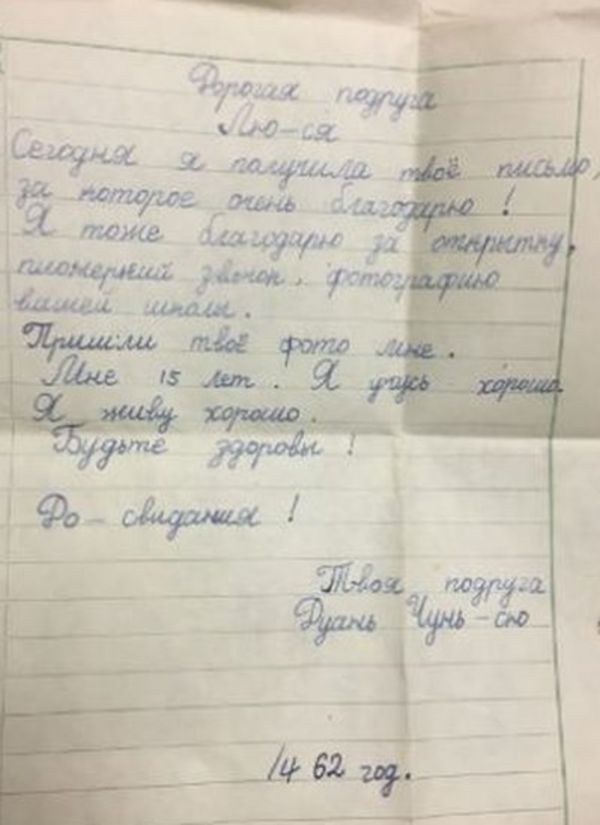 Дорогая подруга
Лю-ся
Сегодня я получила твоё письмо,
за которое очень благодарю!
Я тоже благодарю за открытку,
пионеркий звочок, фотографию
вашей школы.
Пришли твоё фото мне.
Мне 15 лет. Я учусь хорошо.
Я живу хорошо.
Будьте здоровы!
До-свидания!
Твоя подруга
Дуань Чунь-сю
14 62 год.